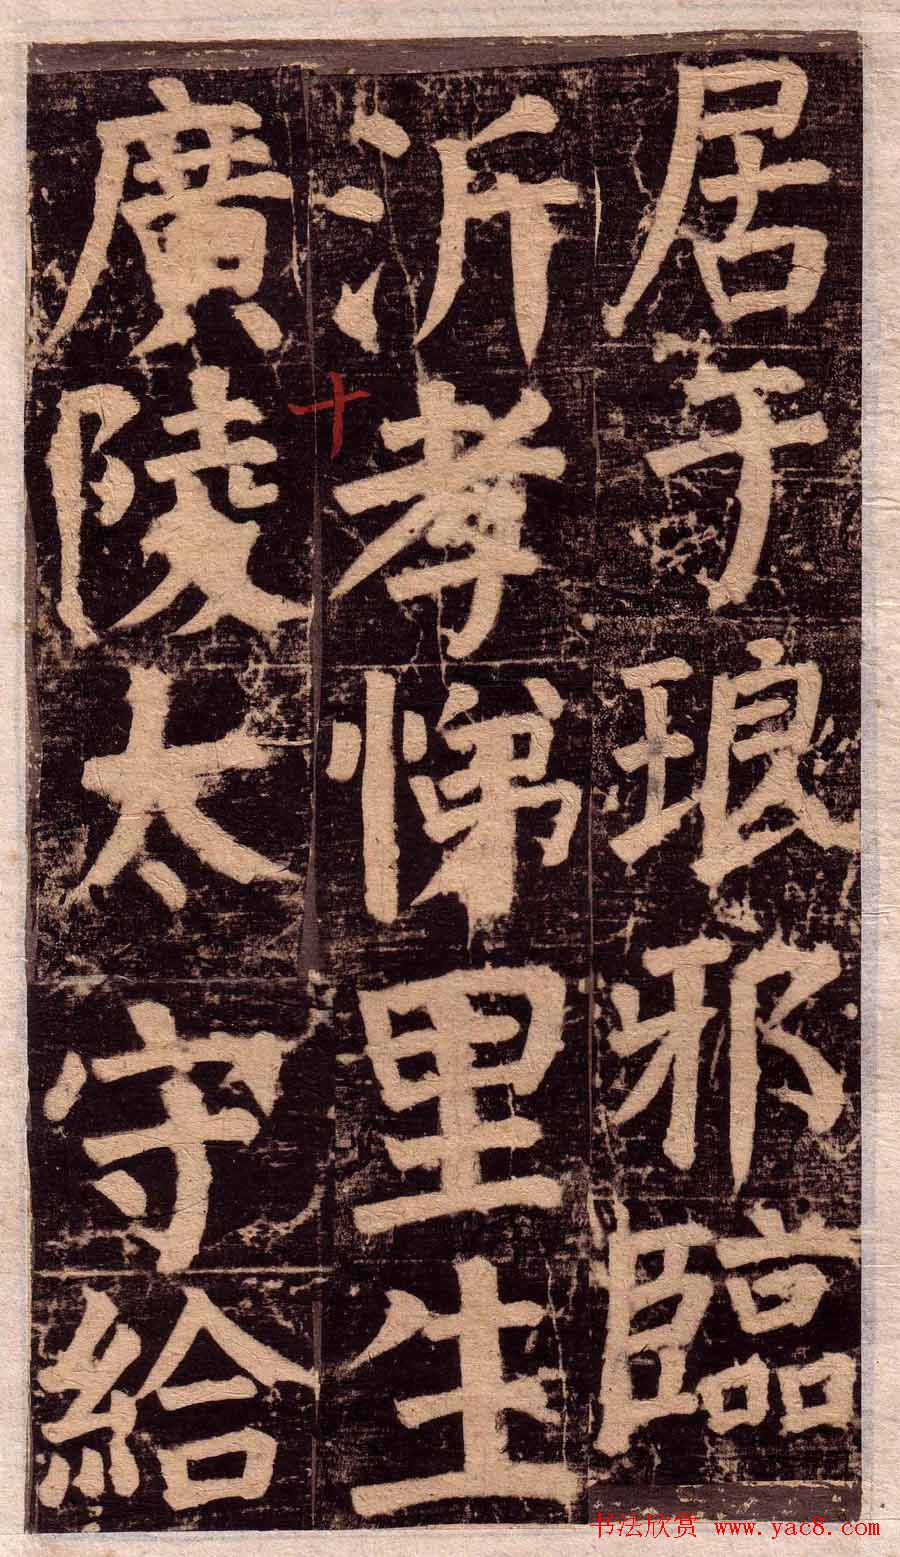 居于琅邪臨
沂孝悌里生
廣陵太守給
十
书法欣赏 www.yac8.com